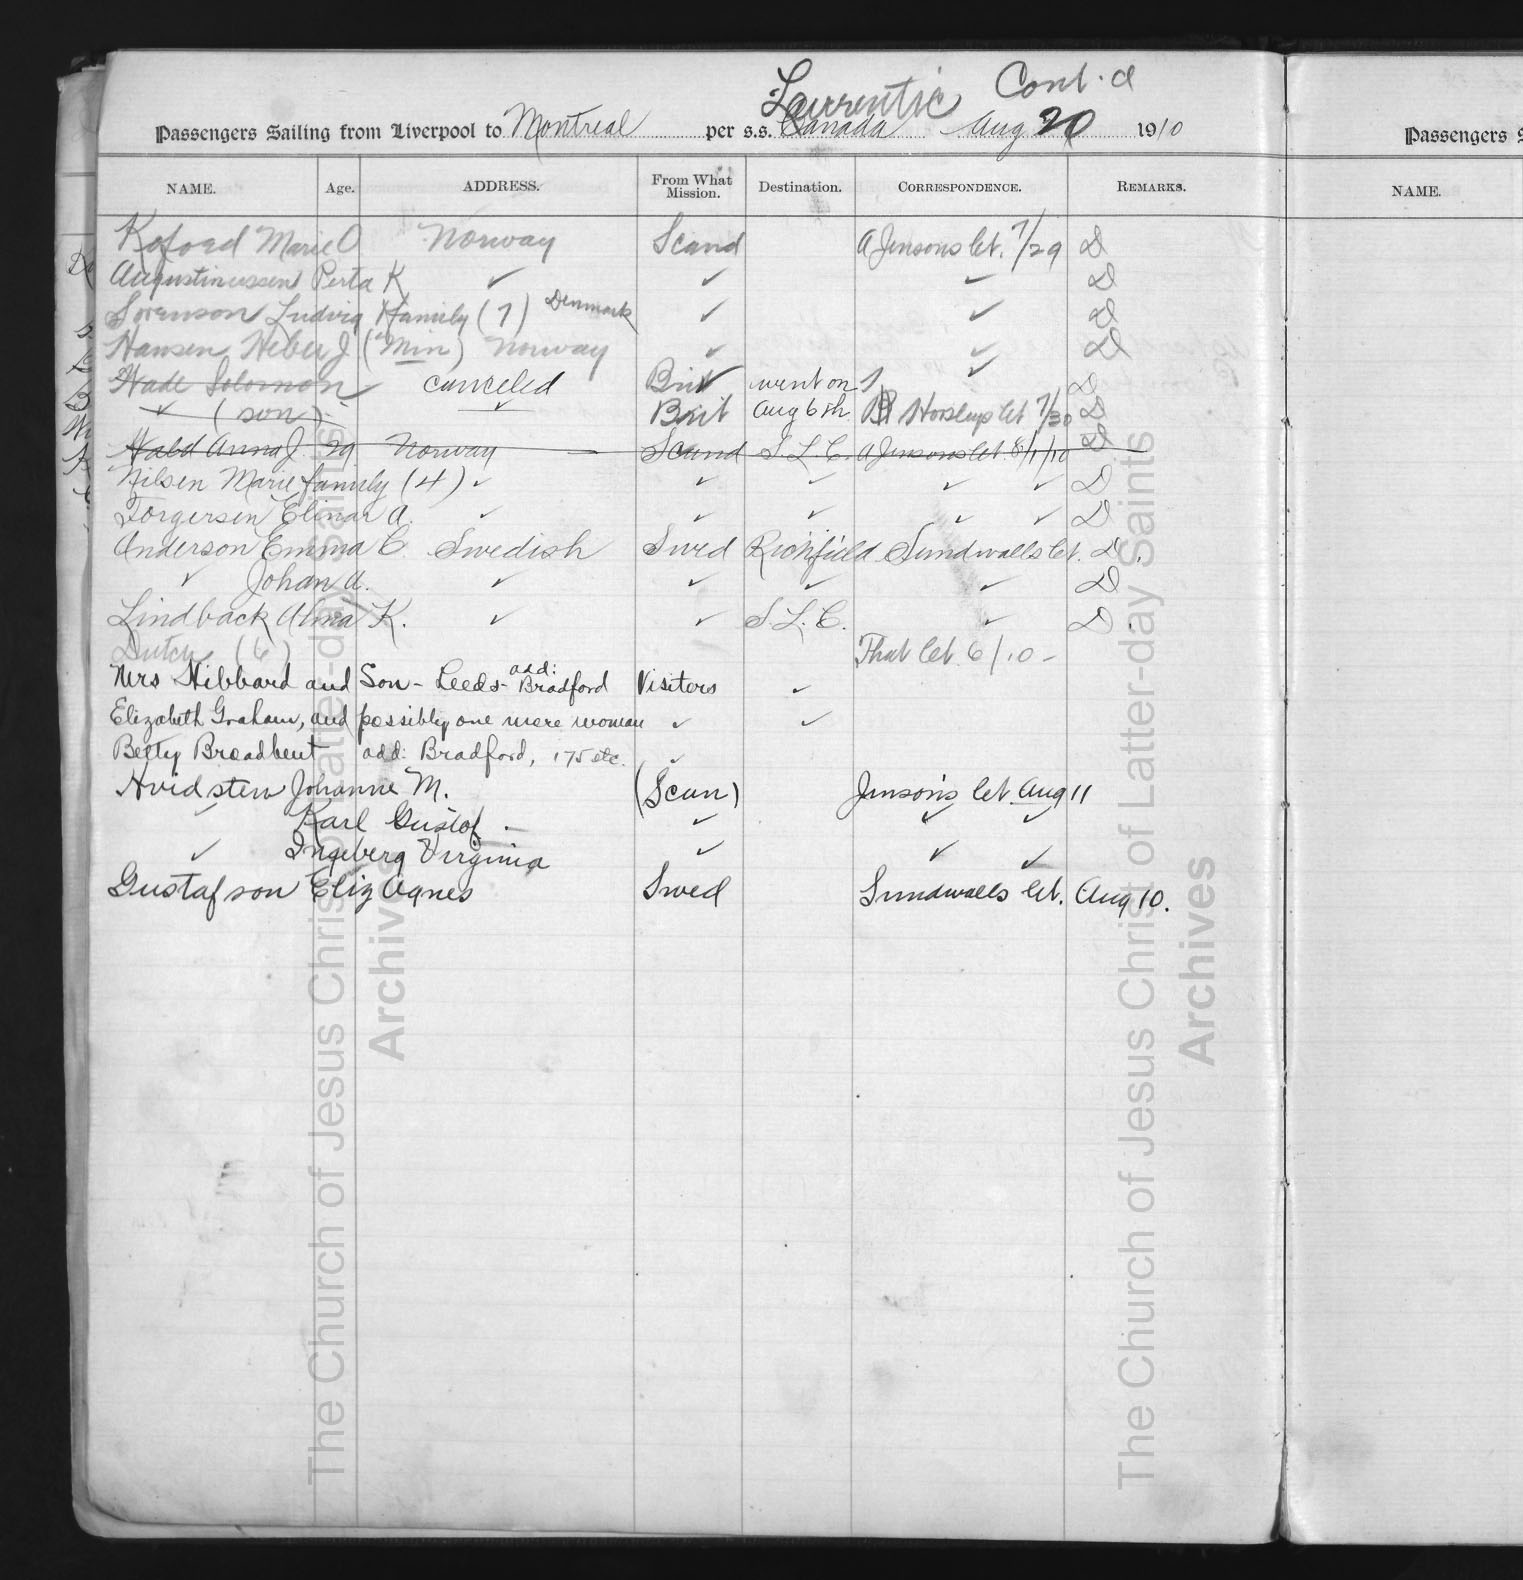 Laurentic Cont.d
Passengers Sailing from Liverpool to Montreal per s.s. Canada Aug 20 1910
Passengers S
NAME. Age. ADDRESS. From What Mission. Destination. CORRESPONDENCE. REMARKS.
NAME.
Kofoed Marie O Norway Scand A Jensons let. 7/29 D
Augustinussen Perta K ✓ ✓ ✓ D
Sorenson Ludvig Family (7) Denmark ✓ ✓ D
Hansen Heber J ("Min) Norway ✓ ✓ D
Wade Solomon canceled Brit went on ✓ D
✓ (son) Brit Aug 6th Horsleys let 7/30 D
Habd Anna J. 29 Norway Scand S.L.C. A Jensons let 8/1/10 D
Nilsen Marie family (4) ✓ ✓ ✓ ✓ ✓ D
Torgersen Elinar A. ✓ ✓ ✓ ✓ ✓ D
Anderson Emma C. Swedish Swed Richfield Sundwalls let. D.
✓ Johan A. ✓ ✓ ✓ ✓ D
Lindback Alma K. ✓ ✓ S.L.C. ✓ D.
Dutch (6) That let 6/10 -
Mrs Hibbard and Son - Leeds - add: Bradford Visitors ✓
Elizabeth Graham, and possibly one more woman ✓ ✓
Betty Broadbent add: Bradford, 175 etc. ✓
Hvidsten Johanne M. (Scan) Jenson's let Aug 11
✓ Karl Gustof - ✓ ✓ ✓
✓ Ingeberg Virginia ✓ ✓ ✓
Gustafson Eliz Agnes Swed Sundwalls let. Aug 10.
The Church of Jesus Christ of Latter-day Saints
Archives
The Church of Jesus Christ of Latter-day Saints
Archives